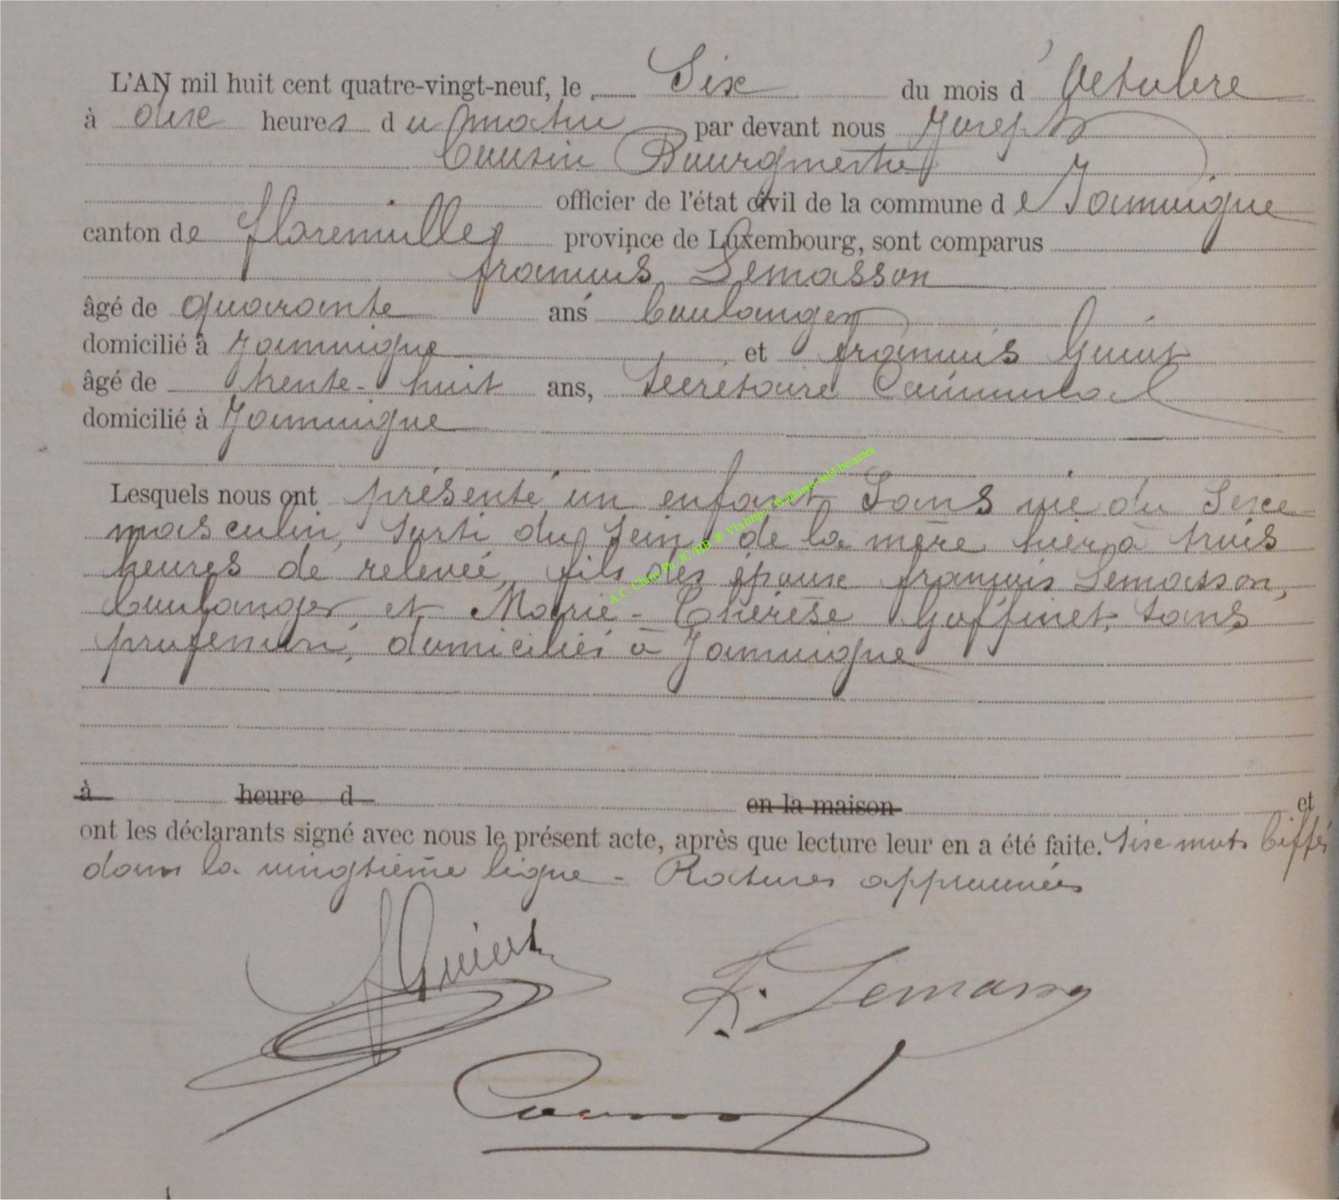 L'AN mil huit cent quatre-vingt-neuf, le Six du mois d'Octobre
à dixe heures du matin par devant nous Joseph
Cousin Bourgmestre
officier de l'état civil de la commune de Jamoigne
canton de florenville province de Luxembourg, sont comparus
françois Lemasson
âgé de quarante ans boulanger
domicilié à Jamoigne et françois Guiot
âgé de trente-huit ans, Secrétaire Communal
domicilié à Jamoigne
Lesquels nous ont présenté un enfant Sans vie du Sexe
masculin, sorti du Sein de la mère hier à trois
heures de relevée, fils des époux françois Lemasson,
boulanger et Marie-Thérèse Goffinet, sans
profession, domiciliés à Jamoigne
à heure d en la maison et
ont les déclarants signé avec nous le présent acte, après que lecture leur en a été faite. Sixe mots biffés
dans la vingtième ligne - Ratures approuvées
Guiot
F. Lemasson